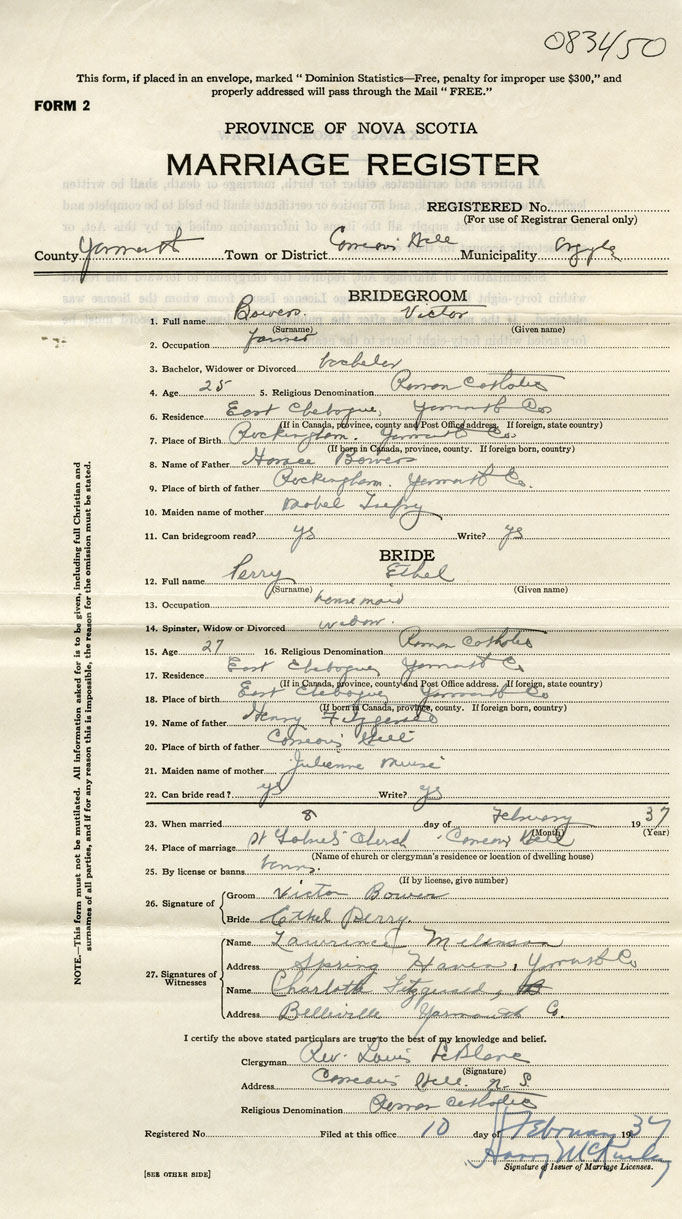 083450
This form, if placed in an envelope, marked “ Dominion Statistics—Free, penalty for improper use $300,” and
properly addressed will pass through the Mail “ FREE.”
FORM 2
PROVINCE OF NOVA SCOTIA
MARRIAGE REGISTER
REGISTERED No.
(For use of Registrar General only)
County Yarmouth Town or District Comeau's Hill Municipality Argyle
BRIDEGROOM
1. Full name Bowers Victor
(Surname) (Given name)
2. Occupation farmer
3. Bachelor, Widower or Divorced bachelor
4. Age 25 5. Religious Denomination Roman Catholic
6. Residence East Chebogue, Yarmouth Co
(If in Canada, province, county and Post Office address. If foreign, state country)
7. Place of Birth Rockingham. Yarmouth Co.
(If born in Canada, province, county. If foreign born, country)
8. Name of Father Horace Bowers
9. Place of birth of father Rockingham. Yarmouth Co.
10. Maiden name of mother Mabel
11. Can bridegroom read? yes Write? yes
BRIDE
12. Full name Perry Ethel
(Surname) (Given name)
13. Occupation housemaid
14. Spinster, Widow or Divorced widow.
15. Age 27 16. Religious Denomination Roman Catholic
17. Residence East Chebogue, Yarmouth Co
(If in Canada, province, county and Post Office address. If foreign, state country)
18. Place of birth East Chebogue Yarmouth Co
(If born in Canada, province, county. If foreign born, country)
19. Name of father Henry Fitzgerald
20. Place of birth of father Comeau's Hill
21. Maiden name of mother Julienne Muise
22. Can bride read? yes Write? yes
23. When married 8 day of February 1937
(Month) (Year)
24. Place of marriage Church Comeau Hill
(Name of church or clergyman's residence or location of dwelling house)
25. By license or banns banns.
(If by license, give number)
26. Signature of
Groom Victor Bowers
Bride Ethel Perry.
27. Signatures of
Witnesses
Name Lawrence Melanson
Address Spring Haven, Yarmouth Co
Name Charlotte Fitzgerald,
Address Belleville Yarmouth Co.
I certify the above stated particulars are true to the best of my knowledge and belief.
Clergyman Rev. Louis LeBlanc
(Signature)
Address Comeau's Hill. N. S.
Religious Denomination Roman Catholic
Registered No. Filed at this office 10 day of February 1937
Harry McKinley
Signature of Issuer of Marriage Licenses.
[SEE OTHER SIDE]
NOTE.—This form must not be mutilated. All information asked for is to be given, including full Christian and
surnames of all parties, and if for any reason this is impossible, the reason for the omission must be stated.